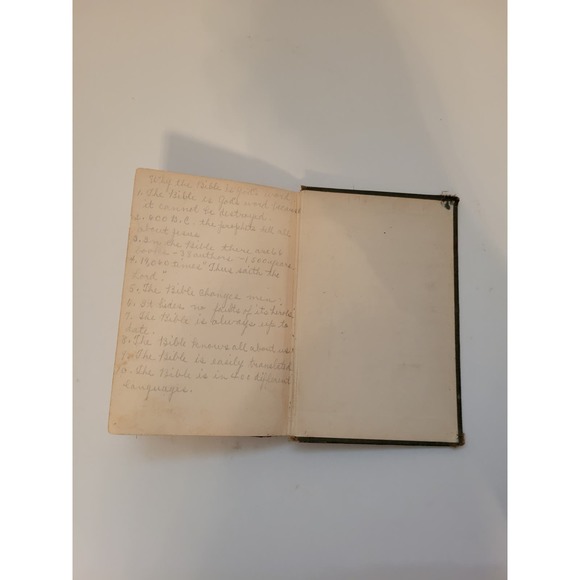 Why the Bible is God's word
1. The Bible is God's word because
it cannot be destroyed.
B.C. the prophets tell all
about Jesus
3. In the Bible there are 66
books - authors - years.
4. times "Thus saith the
Lord."
5. The Bible changes men.
6. It hides no faults of its heroes
7. The Bible is always up to
date.
8. The Bible knows all about us
9. The Bible is easily translated
10. The Bible is in different
languages.